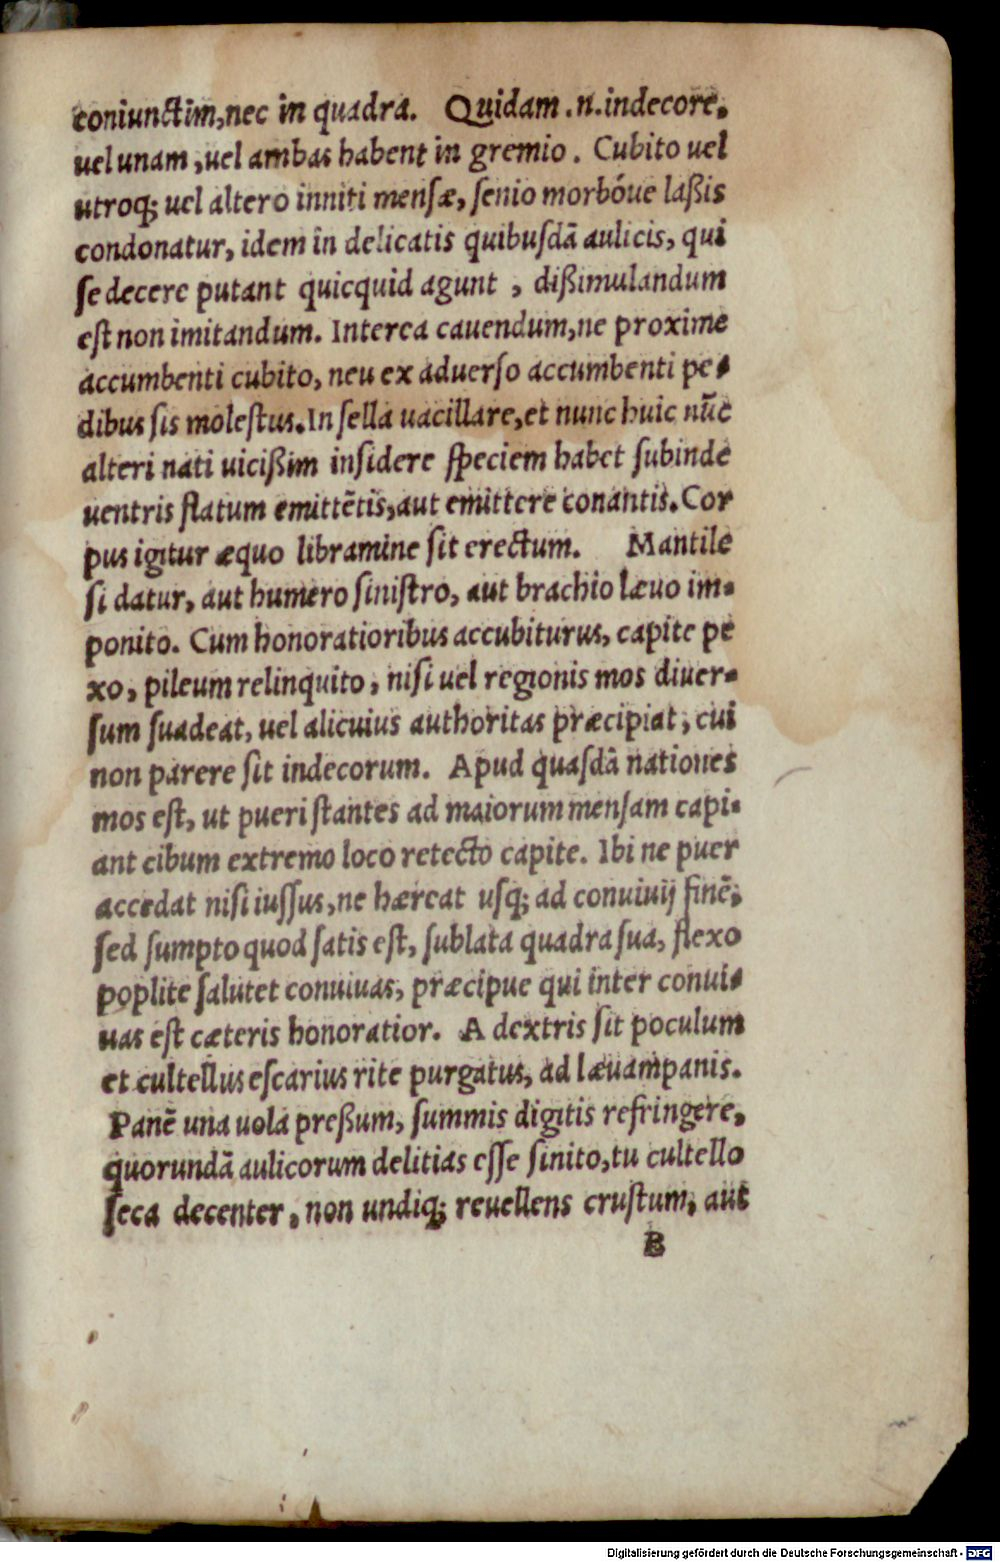 coniunctim,nec in quadra. Quidam .n.indecore,
uel unam ,uel ambas habent in gremio . Cubito uel
utroq; uel altero inniti mensæ, senio morbóue laßis
condonatur, idem in delicatis quibusdã aulicis, qui
se decere putant quicquid agunt , dißimulandum
est non imitandum. Interea cauendum,ne proxime
accumbenti cubito, neu ex aduerso accumbenti pe-
dibus sis molestus.In sella uacillare,et nunc huic nũc
alteri nati uicißim insidere speciem habet subinde
uentris flatum emittẽtis,aut emittere conantis.Cor
pus igitur æquo libramine sit erectum. Mantile
si datur, aut humero sinistro, aut brachio læuo im-
ponito. Cum honoratioribus accubiturus, capite pe
xo, pileum relinquito, nisi uel regionis mos diuer-
sum suadeat, uel alicuius authoritas præcipiat, cui
non parere sit indecorum. Apud quasdã nationes
mos est, ut pueri stantes ad maiorum mensam capi-
ant cibum extremo loco retecto capite. Ibi ne puer
accedat nisi iussus,ne hæreat usq; ad conuiuij finẽ;
sed sumpto quod satis est, sublata quadra sua, flexo
poplite salutet conuiuas, præcipue qui inter conui-
uas est cæteris honoratior. A dextris sit poculum
et cultellus escarius rite purgatus, ad læuam panis.
Panẽ una uola preßum, summis digitis refringere,
quorundã aulicorum delitias esse sinito,tu cultello
seca decenter, non undiq; reuellens crustum, aut
B
Digitalisierung gefördert durch die Deutsche Forschungsgemeinschaft - DFG